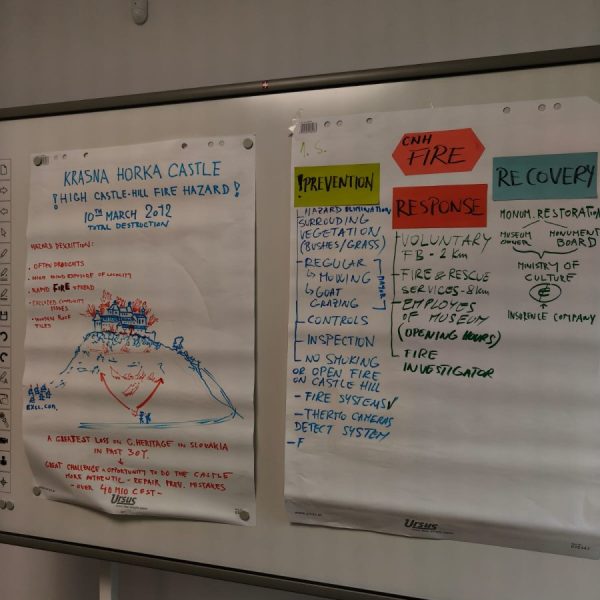 KRASNA HORKA CASTLE
! HIGH CASTLE-HILL FIRE HAZARD !
10TH MARCH 2012
TOTAL DESTRUCTION
HAZARD DESCRIPTION:
• OFTEN DROUGHTS
• HIGH WIND EXPOSURE OF LOCALITY
• RAPID FIRE SPREAD
• EXCLUDED COMMUNITY
• WOODEN ROOF
TILES
EXCL. COM.
A GREATEST LOSS ON C. HERITAGE IN SLOVAKIA
IN PAST 30Y.
GREAT CHALLENGE & OPPORTUNITY TO DO THE CASTLE
MORE AUTHENTIC - REPAIR PREV. MISTAKES
- OVER 40 MIO COST -
Ursus
1. S.
CNH
FIRE
! PREVENTION
- HAZARD ELIMINATION
SURROUDING
VEGETATION
(BUSHES/GRASS)
- REGULAR
↳ MOWING
↳ GOAT
GRAZING
- CONTROLS
- INSPECTION
- NO SMOKING
OR OPEN FIRE
ON CASTLE HILL
- FIRE SYSTEMS ✓
- THERMO CAMERAS
DETECT SYSTEM
- F
RESPONSE
- VOLUNTARY
FB - 2 km
- FIRE & RESCUE
SERVICES - 8km
- EMPLOYES
OF MUSEUM
(OPENING HOURS)
- FIRE
INVESTIGATOR
RECOVERY
MONUM. RESTORATION
MUSEUM OWNER
MONUMENT BOARD
MINISTRY OF
CULTURE
€
INSURENCE COMPANY
Ursus